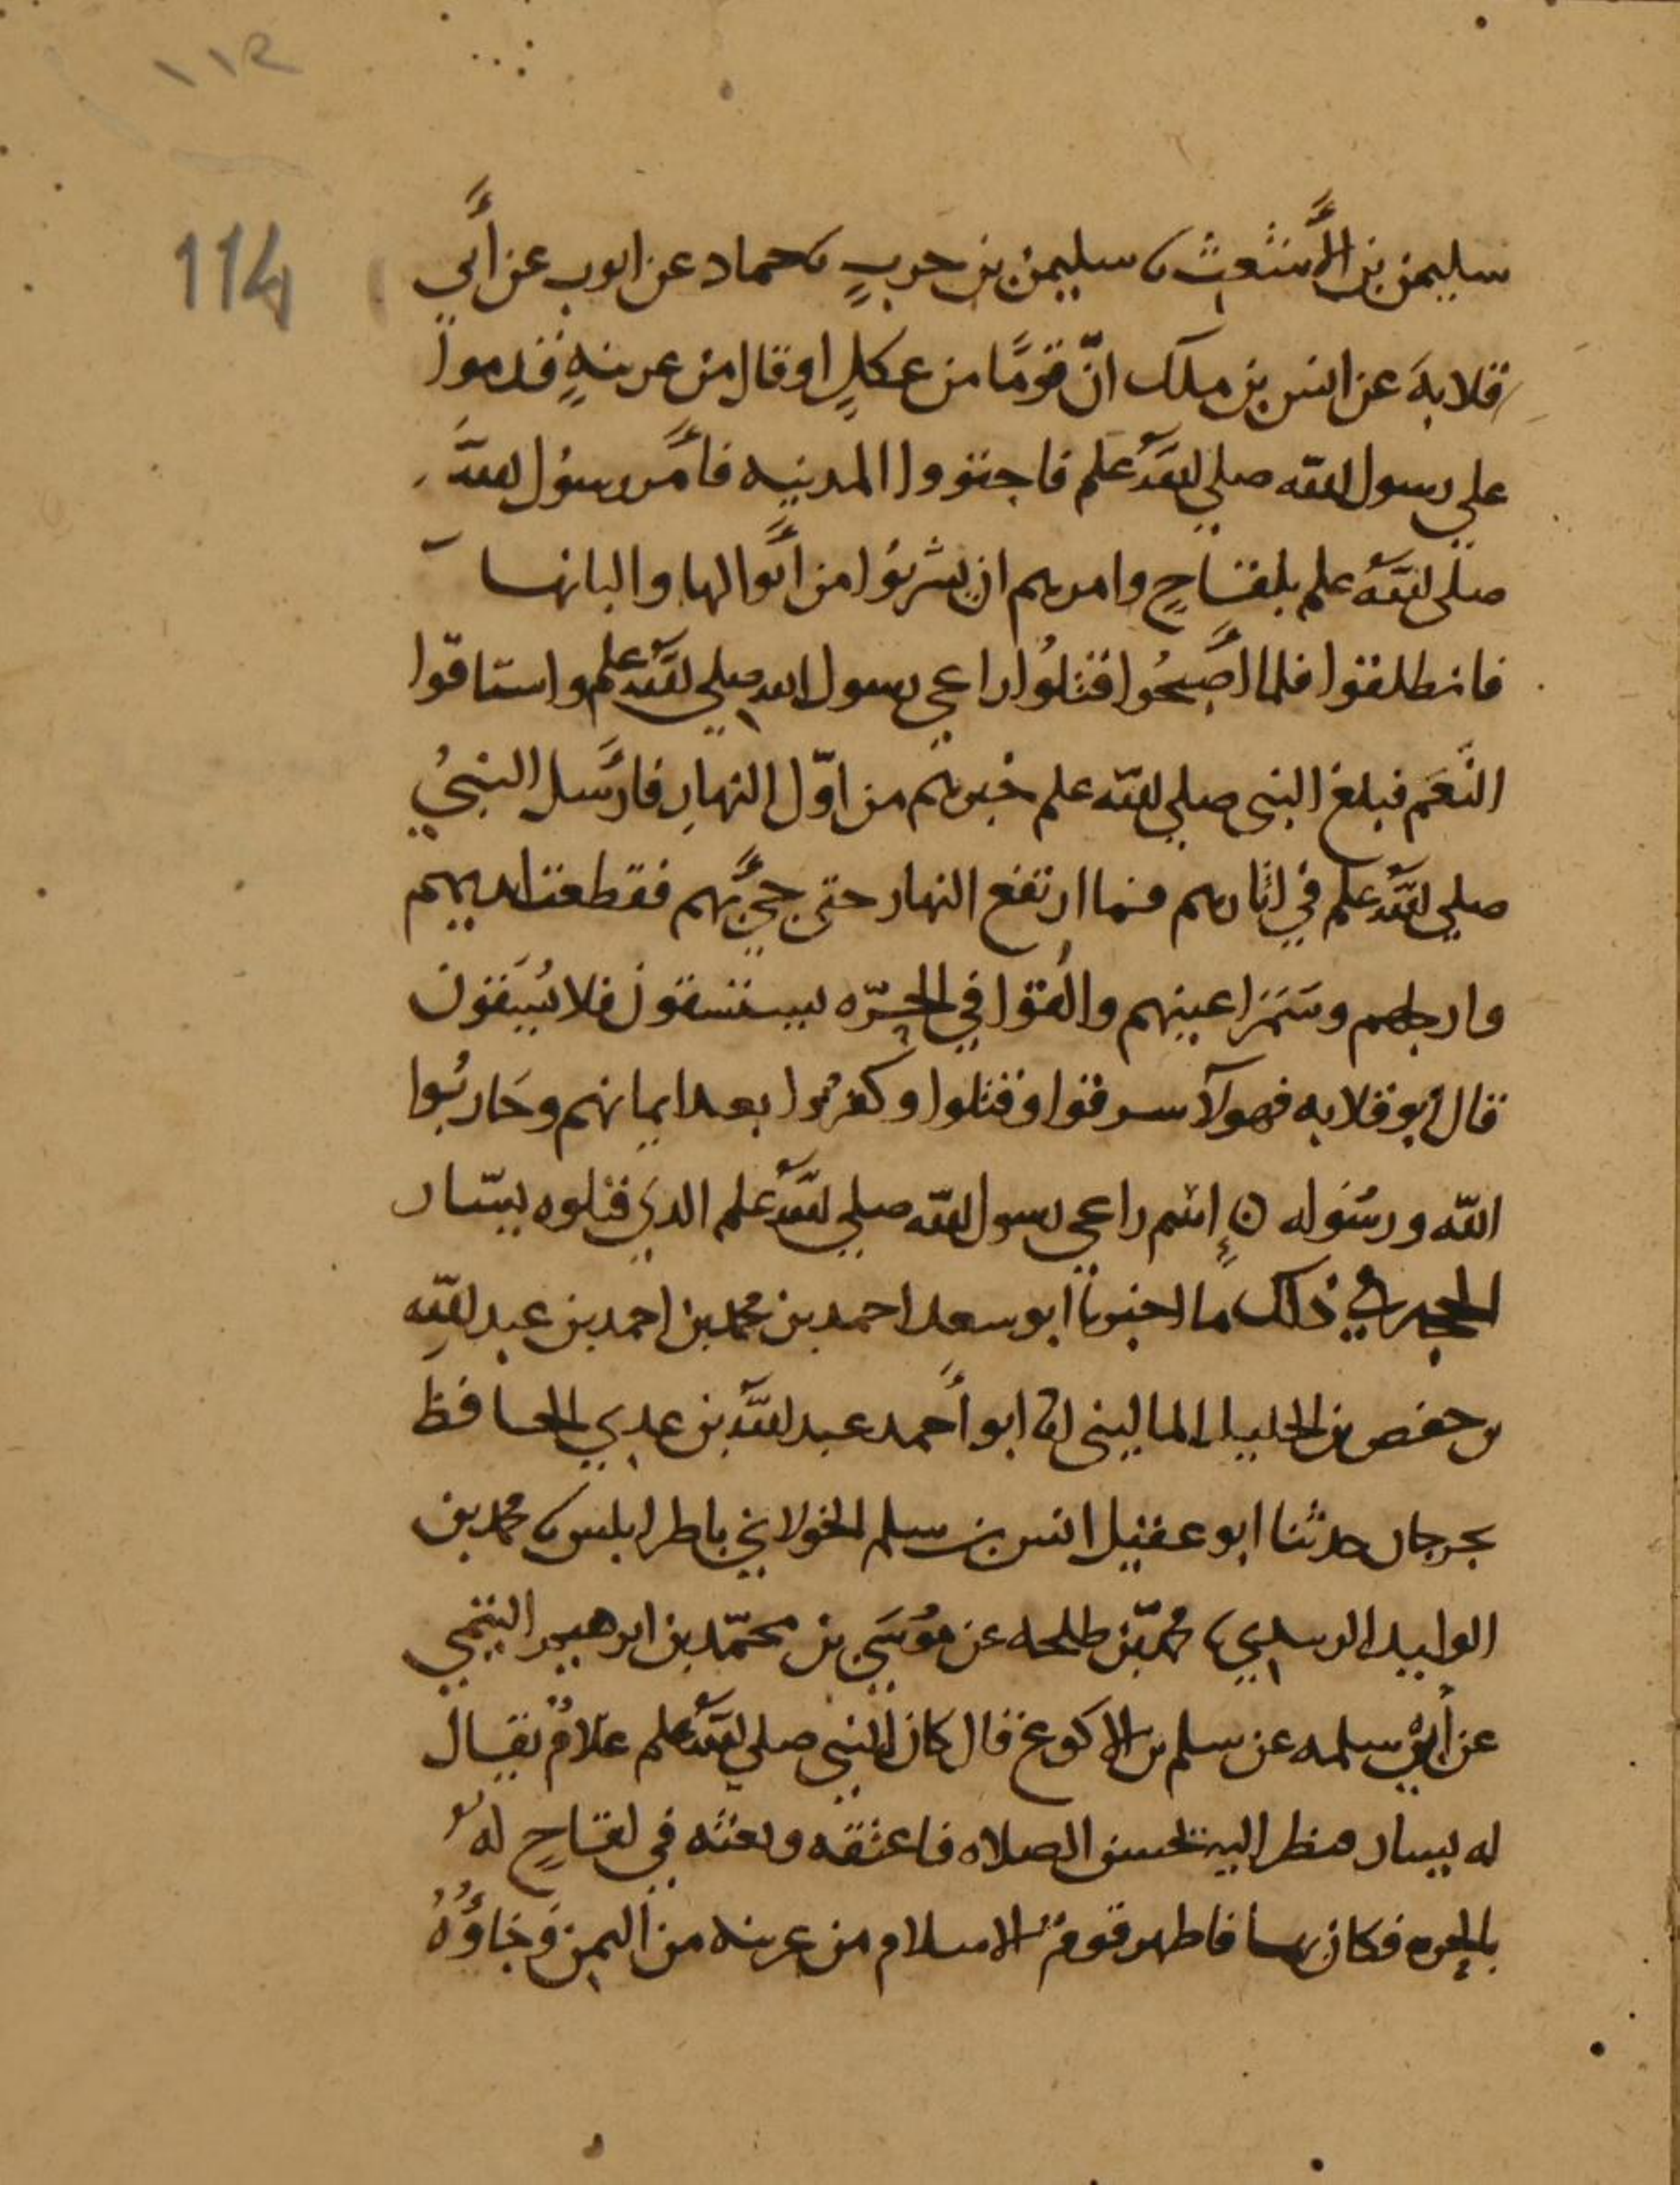 ١١٢
114
سليمن بن الأشعث نا سليمن بن حربٍ نا حماد عن ايوب عن أبي
قلابة عن انس بن ملك انّ قومًا من عكلٍ او قال من عرينةٍ قدموا
علي رسول الله صلي الله علم فاجتووا المدينه فأمر رسول الله
صلى الله علم بلقاحٍ وامرهم ان يشربوا من أبوالها والبانها
فانطلقوا فلما اصبحُوا قتلُوا راعي رسول الله صلي الله علم واستاقوا
النَّعَم فبلغ النبى صلي الله علم خبرهم من اوّل النهارِ فارسل النبيُ
صلي الله علم في اثارهم فما ارتفع النهار حتى جيء بهم فقطعت ايديهم
وارجلهم وسَمَر اعينهم والُقوا في الحرّه يستسقون فلا يُسقَون
قال ابو قلابه فهولآ سرقوا وقتلوا وكفروا بعد ايمانهم وحَاربُوا
الله ورسُوله ن اسم راعي رسول الله صلي الله علم الذي قتلوه يسَار
الحجه في ذلك ما اخبرنا ابو سعد احمد بن محمد بن احمد بن عبد الله
بن حفص بن الخليل المالينى انا ابو أحمد عبد الله بن عدي الحافظ
بجرجان حدثنا ابو عقيل انس بن سلم الخولاني باطرابلس نا محمد بن
الوليد نا محمد بن طلحه عن موُسَي بن محمّد بن ابرهيم التيمي
عن أبي سلمه عن سلم بن الاكوع قال كان للنبي صلي الله علم غلامٌ يقال
له يسار فنظر اليه يحسن الصلاه فاعتقه وبعثه في لقاحٍ له
بالحره فكان بها فاظهر قوم الاسلام من عرينه من اليمن وَجَاؤُا